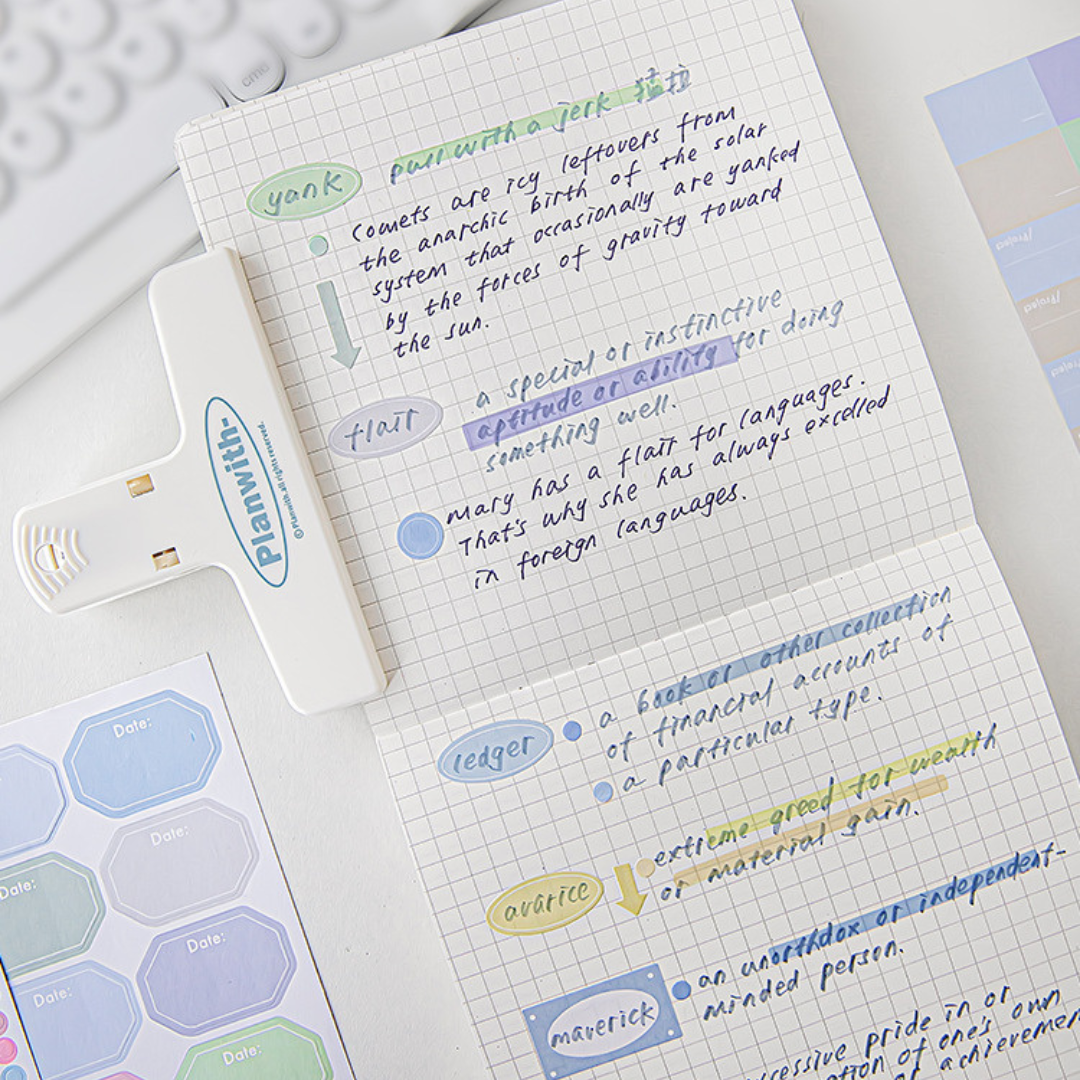 cmd
pull with a jerk 猛拉
yank
Comets are icy leftovers from
the anarchic birth of the solar
system that occasionally are yanked
by the forces of gravity toward
the sun.
a special or instinctive
flair
aptitude or ability for doing
something well.
Mary has a flair for languages.
That's why she has always excelled
in foreign languages.
Planwith-
© Planwith all rights reserved.
ledger
a book or other collection
of financial accounts of
a particular type.
avarice
extreme greed for wealth
or material gain.
maverick
an unorthdox or independent-
minded person.
pride in or
of one's own
or achievemen
Date:
Date:
Date:
Date:
Date:
Date:
/Project
/Project
/Project